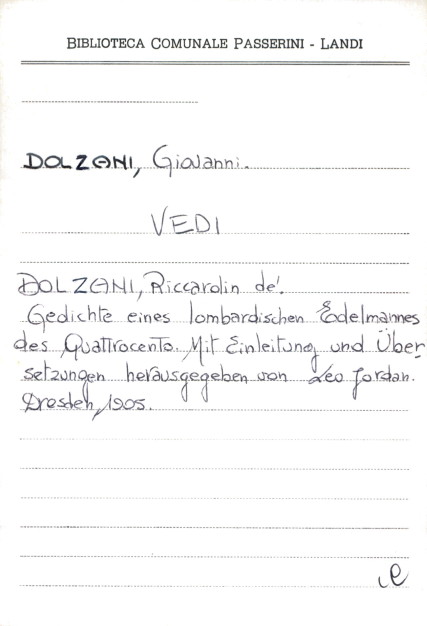 BIBLIOTECA COMUNALE PASSERINI - LANDI
DOLZANI, Giovanni.
VEDI
DOLZANI, Riccarolin de'.
Gedichte eines lombardischen Edelmannes
des Quattrocento. Mit Einleitung und Über
setzungen herausgegeben von Leo Jordan.
Dresden, 1905.